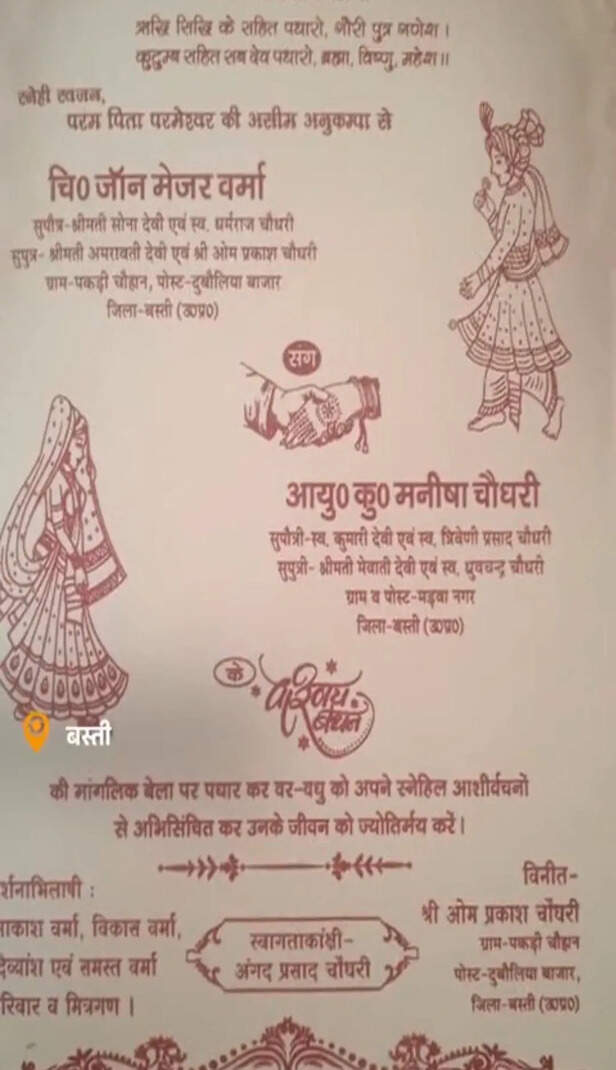 ऋद्धि सिद्धि के सहित पधारो, गौरी पुत्र गणेश।
कुटुम्ब सहित सब देव पधारो, ब्रह्मा, विष्णु, महेश॥
स्नेही स्वजन,
परम पिता परमेश्वर की असीम अनुकम्पा से
चि0 जॉन मेजर वर्मा
सुपौत्र-श्रीमती सोना देवी एवं स्व. धर्मराज चौधरी
सुपुत्र- श्रीमती अमरावती देवी एवं श्री ओम प्रकाश चौधरी
ग्राम-पकड़ी चौहान, पोस्ट-दुबौलिया बाजार
जिला-बस्ती (उ0प्र0)
संग
आयु0 कु0 मनीषा चौधरी
सुपौत्री-स्व. कुमारी देवी एवं स्व. त्रिवेणी प्रसाद चौधरी
सुपुत्री- श्रीमती मेवाती देवी एवं स्व. ध्रुवचन्द्र चौधरी
ग्राम व पोस्ट-मड़वा नगर
जिला-बस्ती (उ0प्र0)
के
परिणय
बंधन
बस्ती
की मांगलिक बेला पर पधार कर वर-वधु को अपने स्नेहिल आशीर्वचनों
से अभिसिंचित कर उनके जीवन को ज्योतिर्मय करें।
र्शनाभिलाषी :
ाकाश वर्मा, विकास वर्मा,
देव्यांश एवं समस्त वर्मा
रिवार व मित्रगण।
स्वागताकांक्षी-
अंगद प्रसाद चौधरी
विनीत-
श्री ओम प्रकाश चौधरी
ग्राम-पकड़ी चौहान
पोस्ट-दुबौलिया बाजार,
जिला-बस्ती (उ0प्र0)